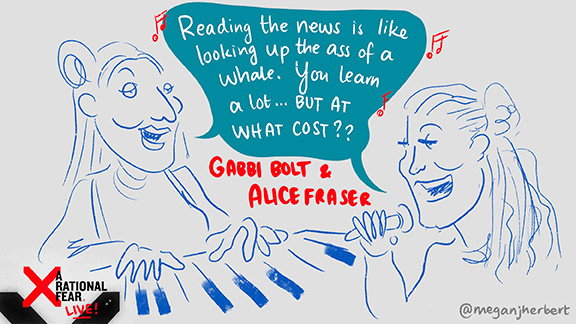 Reading the news is like
looking up the ass of a
whale. You learn
a lot... BUT AT
WHAT COST??
GABBI BOLT &
ALICE FRASER
A
RATIONAL
FEAR
LIVE!
@meganjherbert